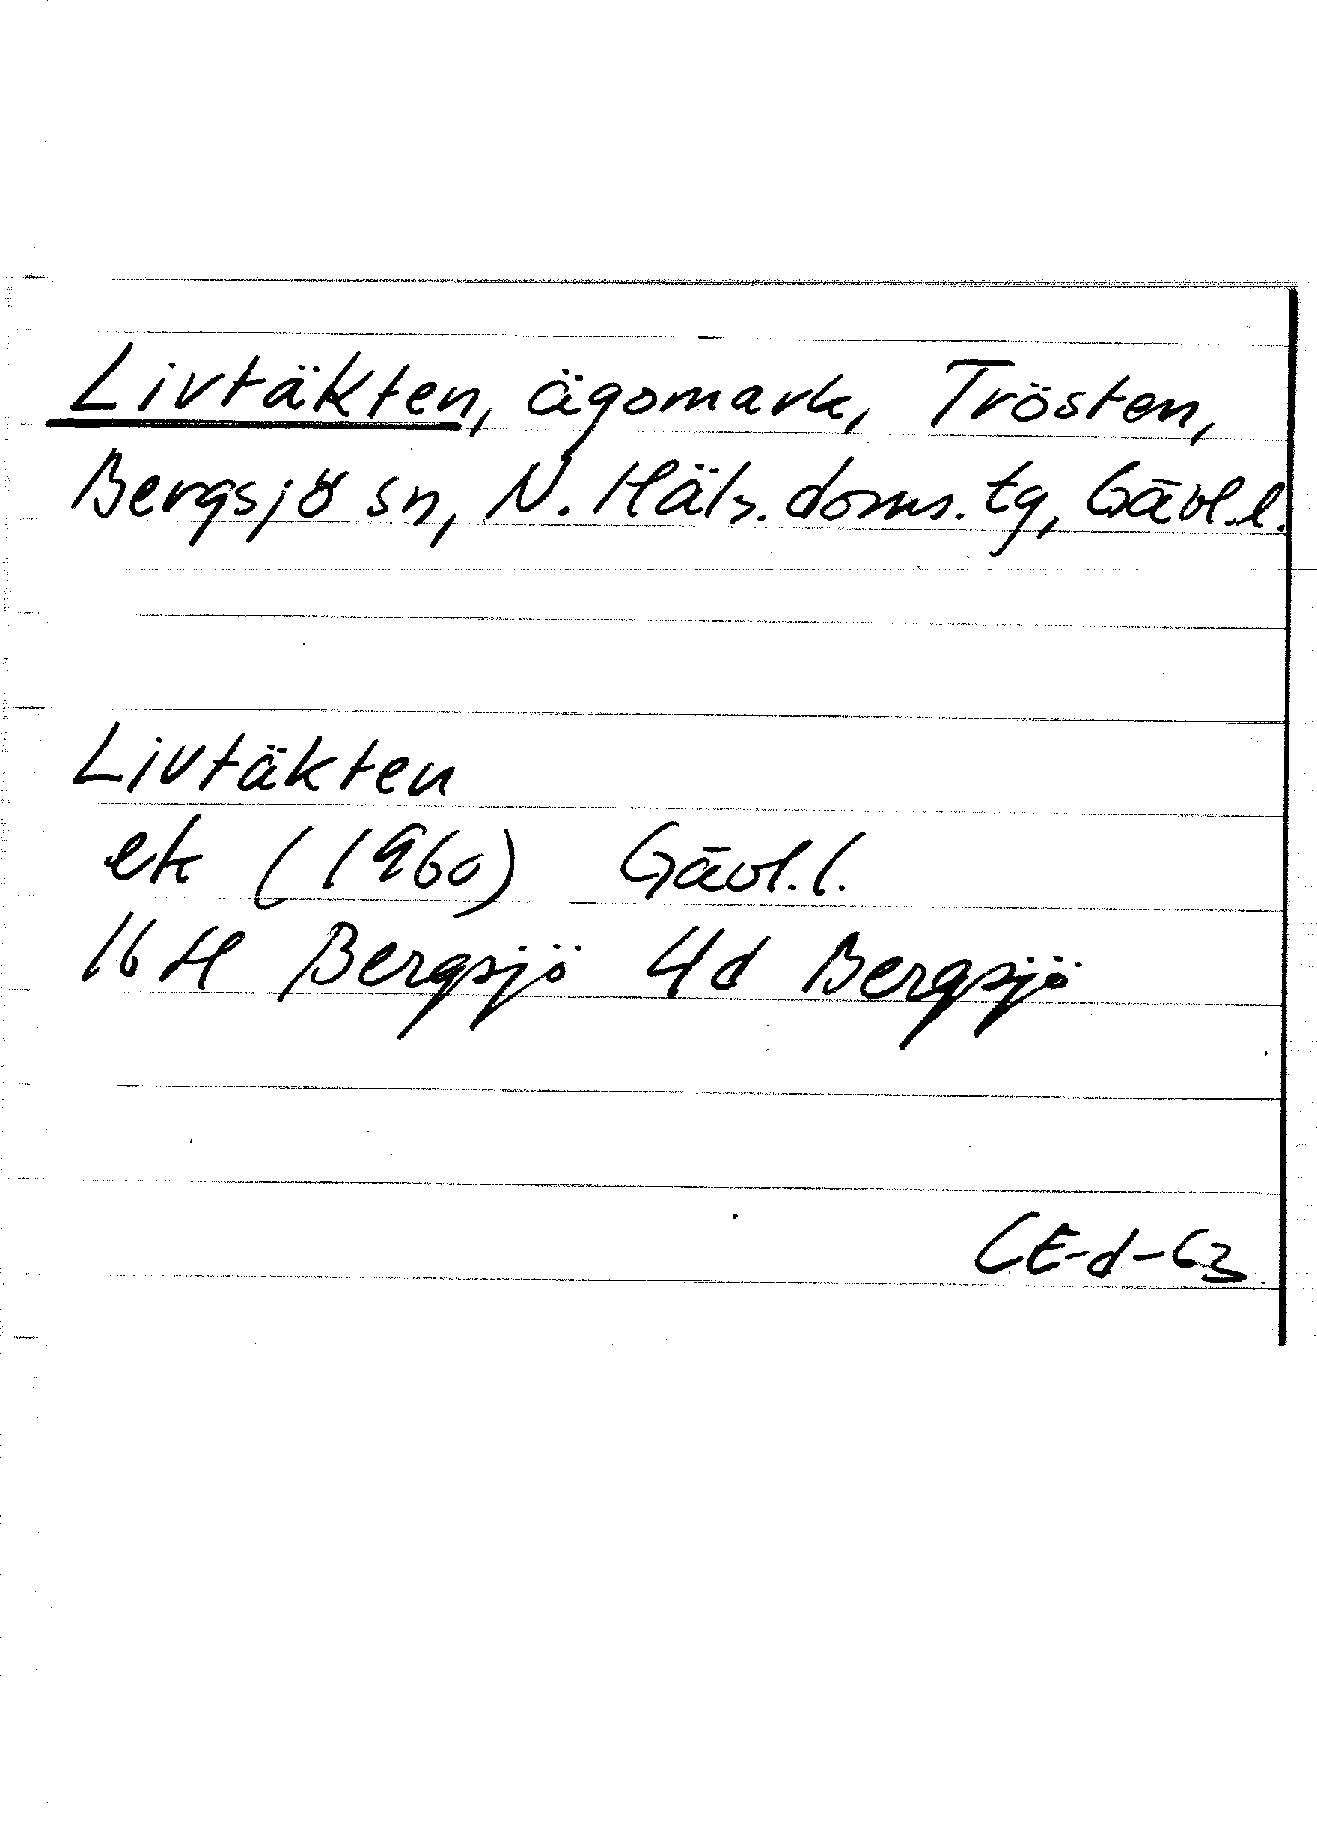 Livtäkten, ägomark, Trösten,
Bergsjö sn, N. Häls. doms. tg, Gävl. l.
Livtäkten
ek (1960) Gävl. l.
16 H Bergsjö 4d Bergsjö
CE-d-63